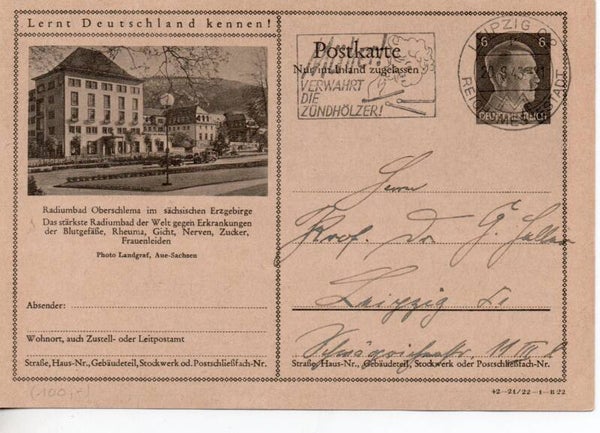 Lernt Deutschland kennen!
Radiumbad Oberschlema im sächsischen Erzgebirge
Das stärkste Radiumbad der Welt gegen Erkrankungen
der Blutgefäße, Rheuma, Gicht, Nerven, Zucker,
Frauenleiden
Photo Landgraf, Aue-Sachsen
Absender:
Wohnort, auch Zustell- oder Leitpostamt
Straße, Haus-Nr., Gebäudeteil, Stockwerk od. Postschließfach-Nr.
(100,-)
Postkarte
Nur im Inland zugelassen
VERWAHRT
DIE
ZÜNDHÖLZER!
LEIPZIG
REICHSMESSESTADT
6 6
DEUTSCHES REICH
Herrn
Prof. Dr. G.
Leipzig
11 III
Straße, Haus-Nr., Gebäudeteil, Stockwerk oder Postschließfach-Nr.
42-21/22-1-B22